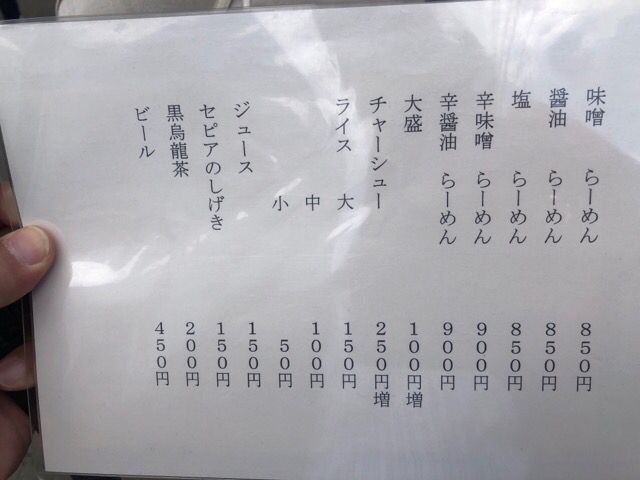 味噌 らーめん 850円
醤油 らーめん 850円
塩 らーめん 850円
辛味噌 らーめん 900円
辛醤油 らーめん 900円
大盛 100円増
チャーシュー 250円増
ライス 大 150円
中 100円
小 50円
ジュース 150円
セピアのしげき 150円
黒烏龍茶 200円
ビール 450円